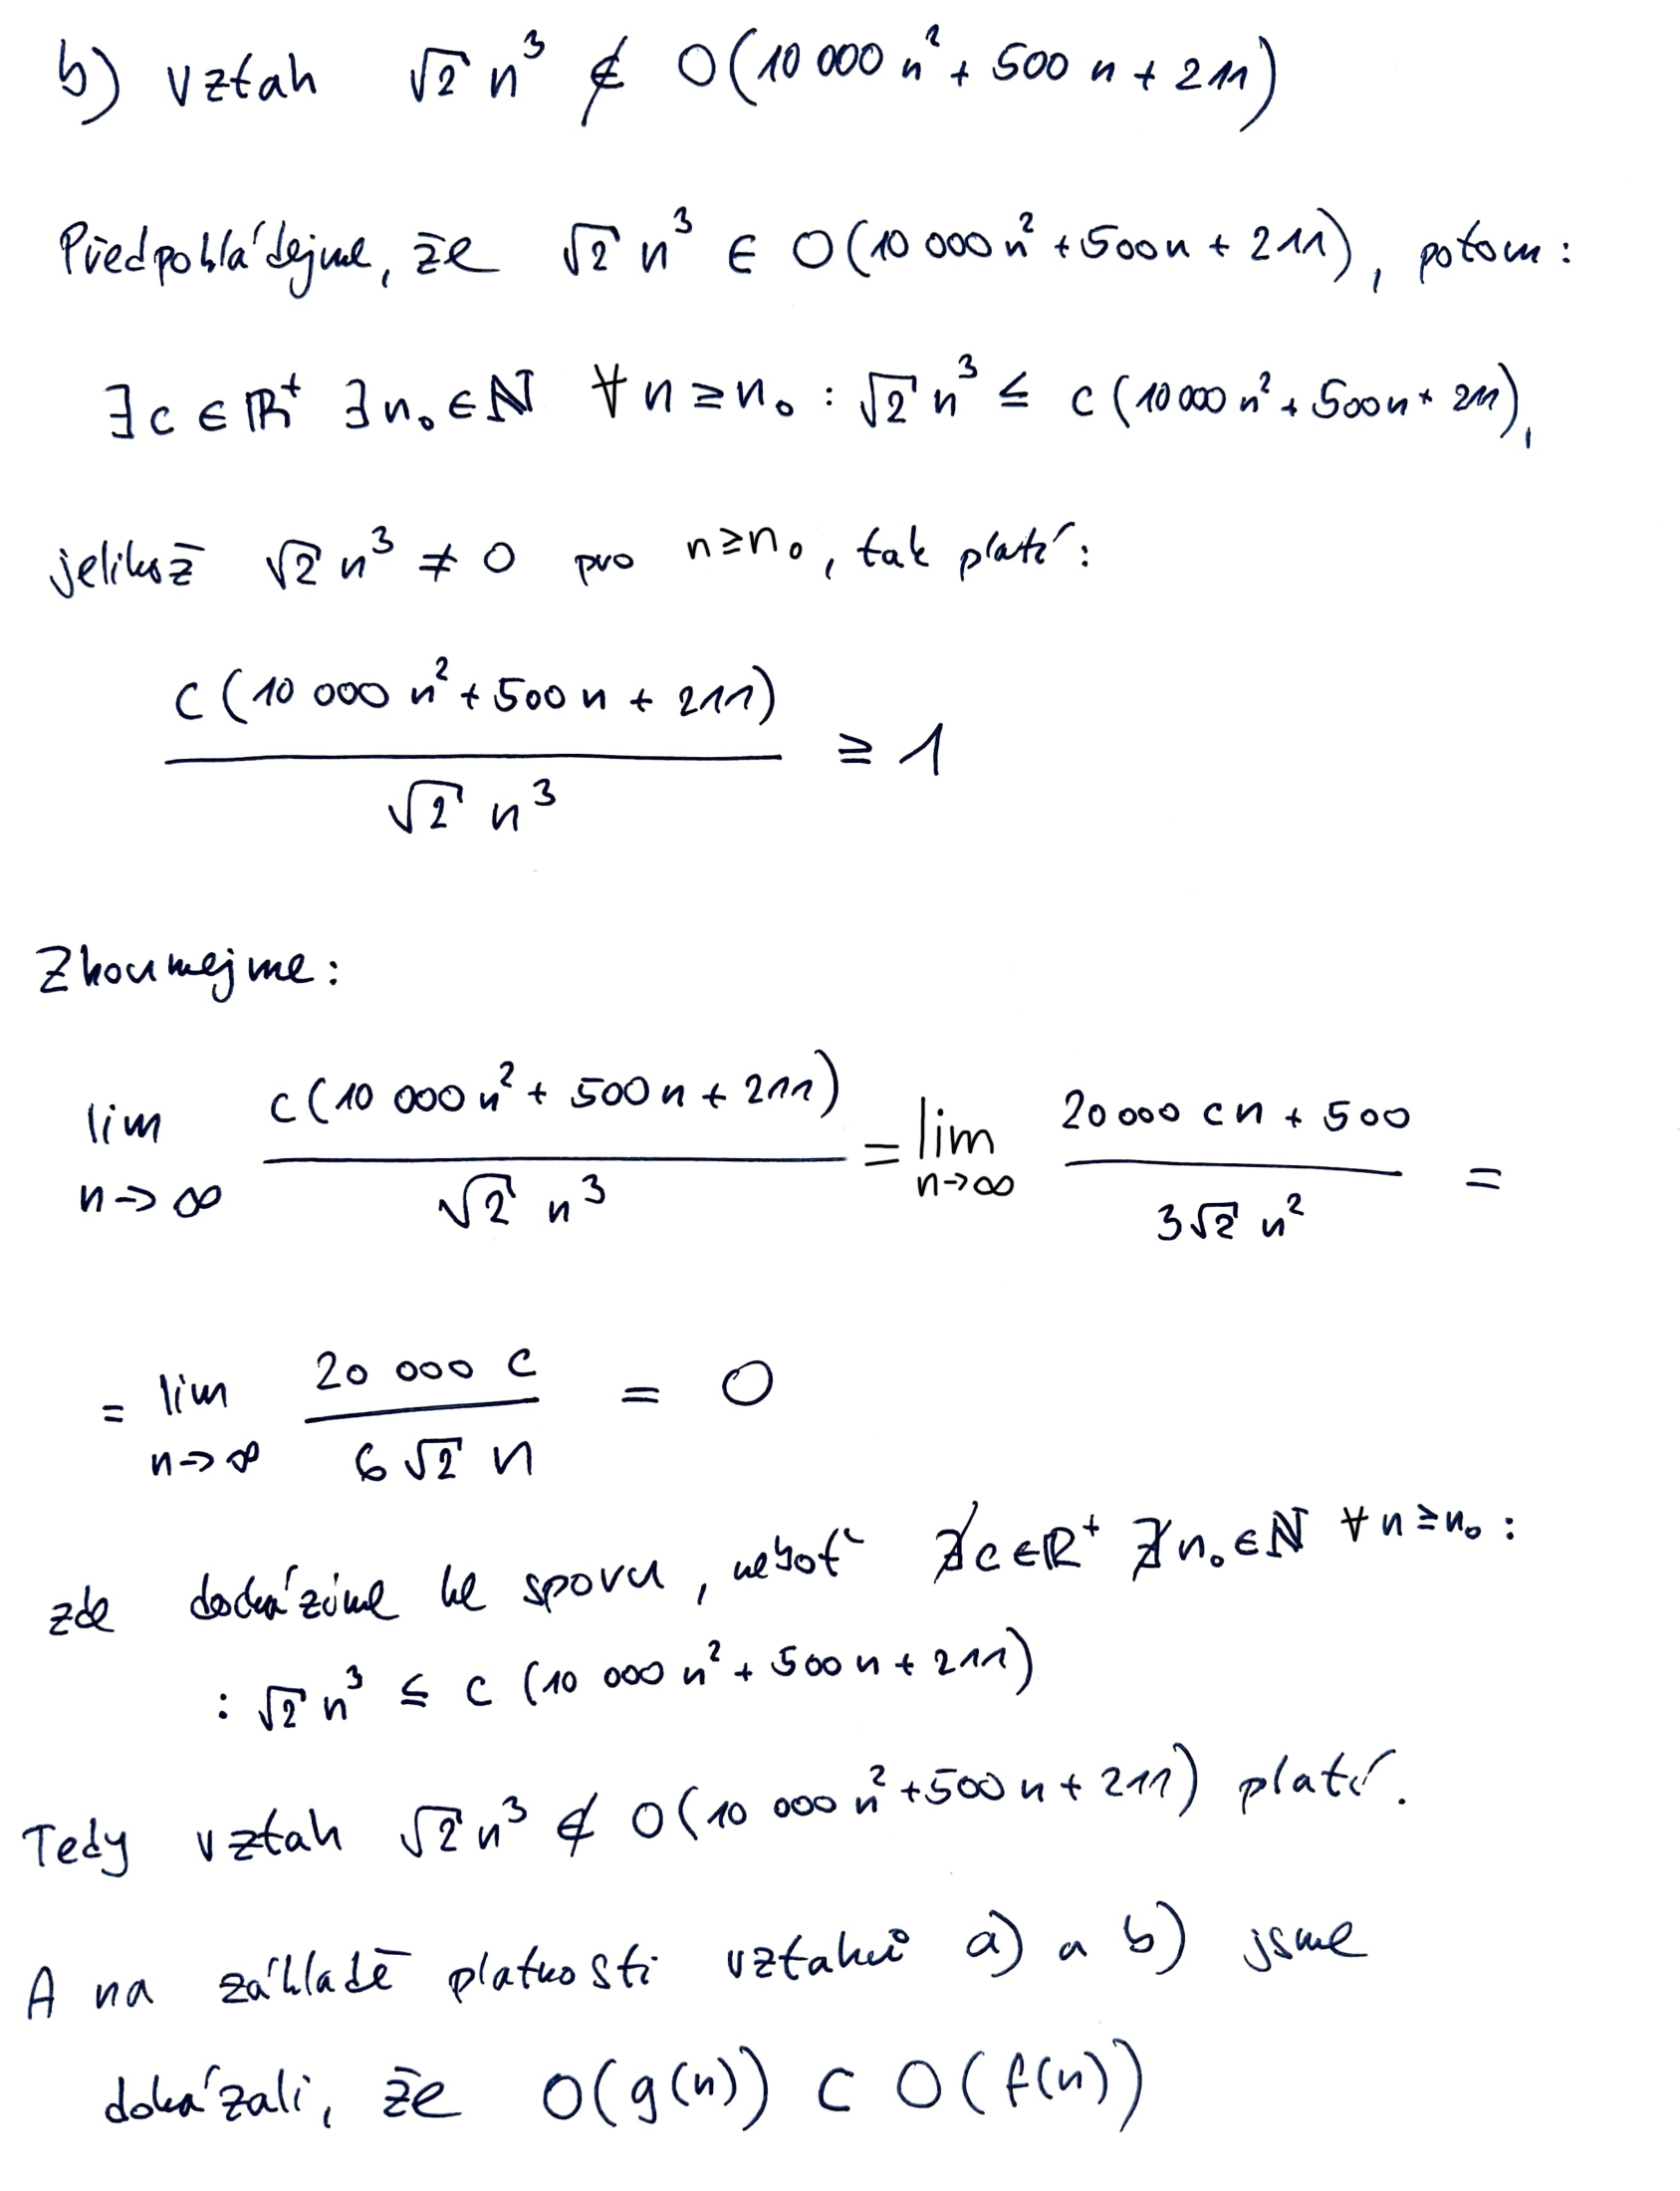 b) Vztah √2 n³ ∉ O(10 000 n² + 500 n + 211)
Předpokládejme, že √2 n³ ∈ O(10 000 n² + 500n + 211), potom:
∃c ∈ ℝ⁺ ∃n₀ ∈ ℕ ∀n ≥ n₀ : √2 n³ ≤ c (10 000 n² + 500n + 211),
jelikož √2 n³ ≠ 0 pro n ≥ n₀, tak platí:
c (10 000 n² + 500 n + 211)
≥ 1
√2 n³
Zkoumejme:
lim n→∞ c (10 000 n² + 500 n + 211) / √2 n³ = lim n→∞ 20 000 c n + 500 / 3√2 n² =
= lim n→∞ 20 000 c / 6 √2 n = 0
zde docházíme ke sporu, neboť ∄c ∈ ℝ⁺ ∄n₀ ∈ ℕ ∀n ≥ n₀ :
: √2 n³ ≤ c (10 000 n² + 500 n + 211)
Tedy vztah √2 n³ ∉ O(10 000 n² + 500 n + 211) platí.
A na základě platnosti vztahů a) a b) jsme
dokázali, že O(g(n)) ⊂ O(f(n))